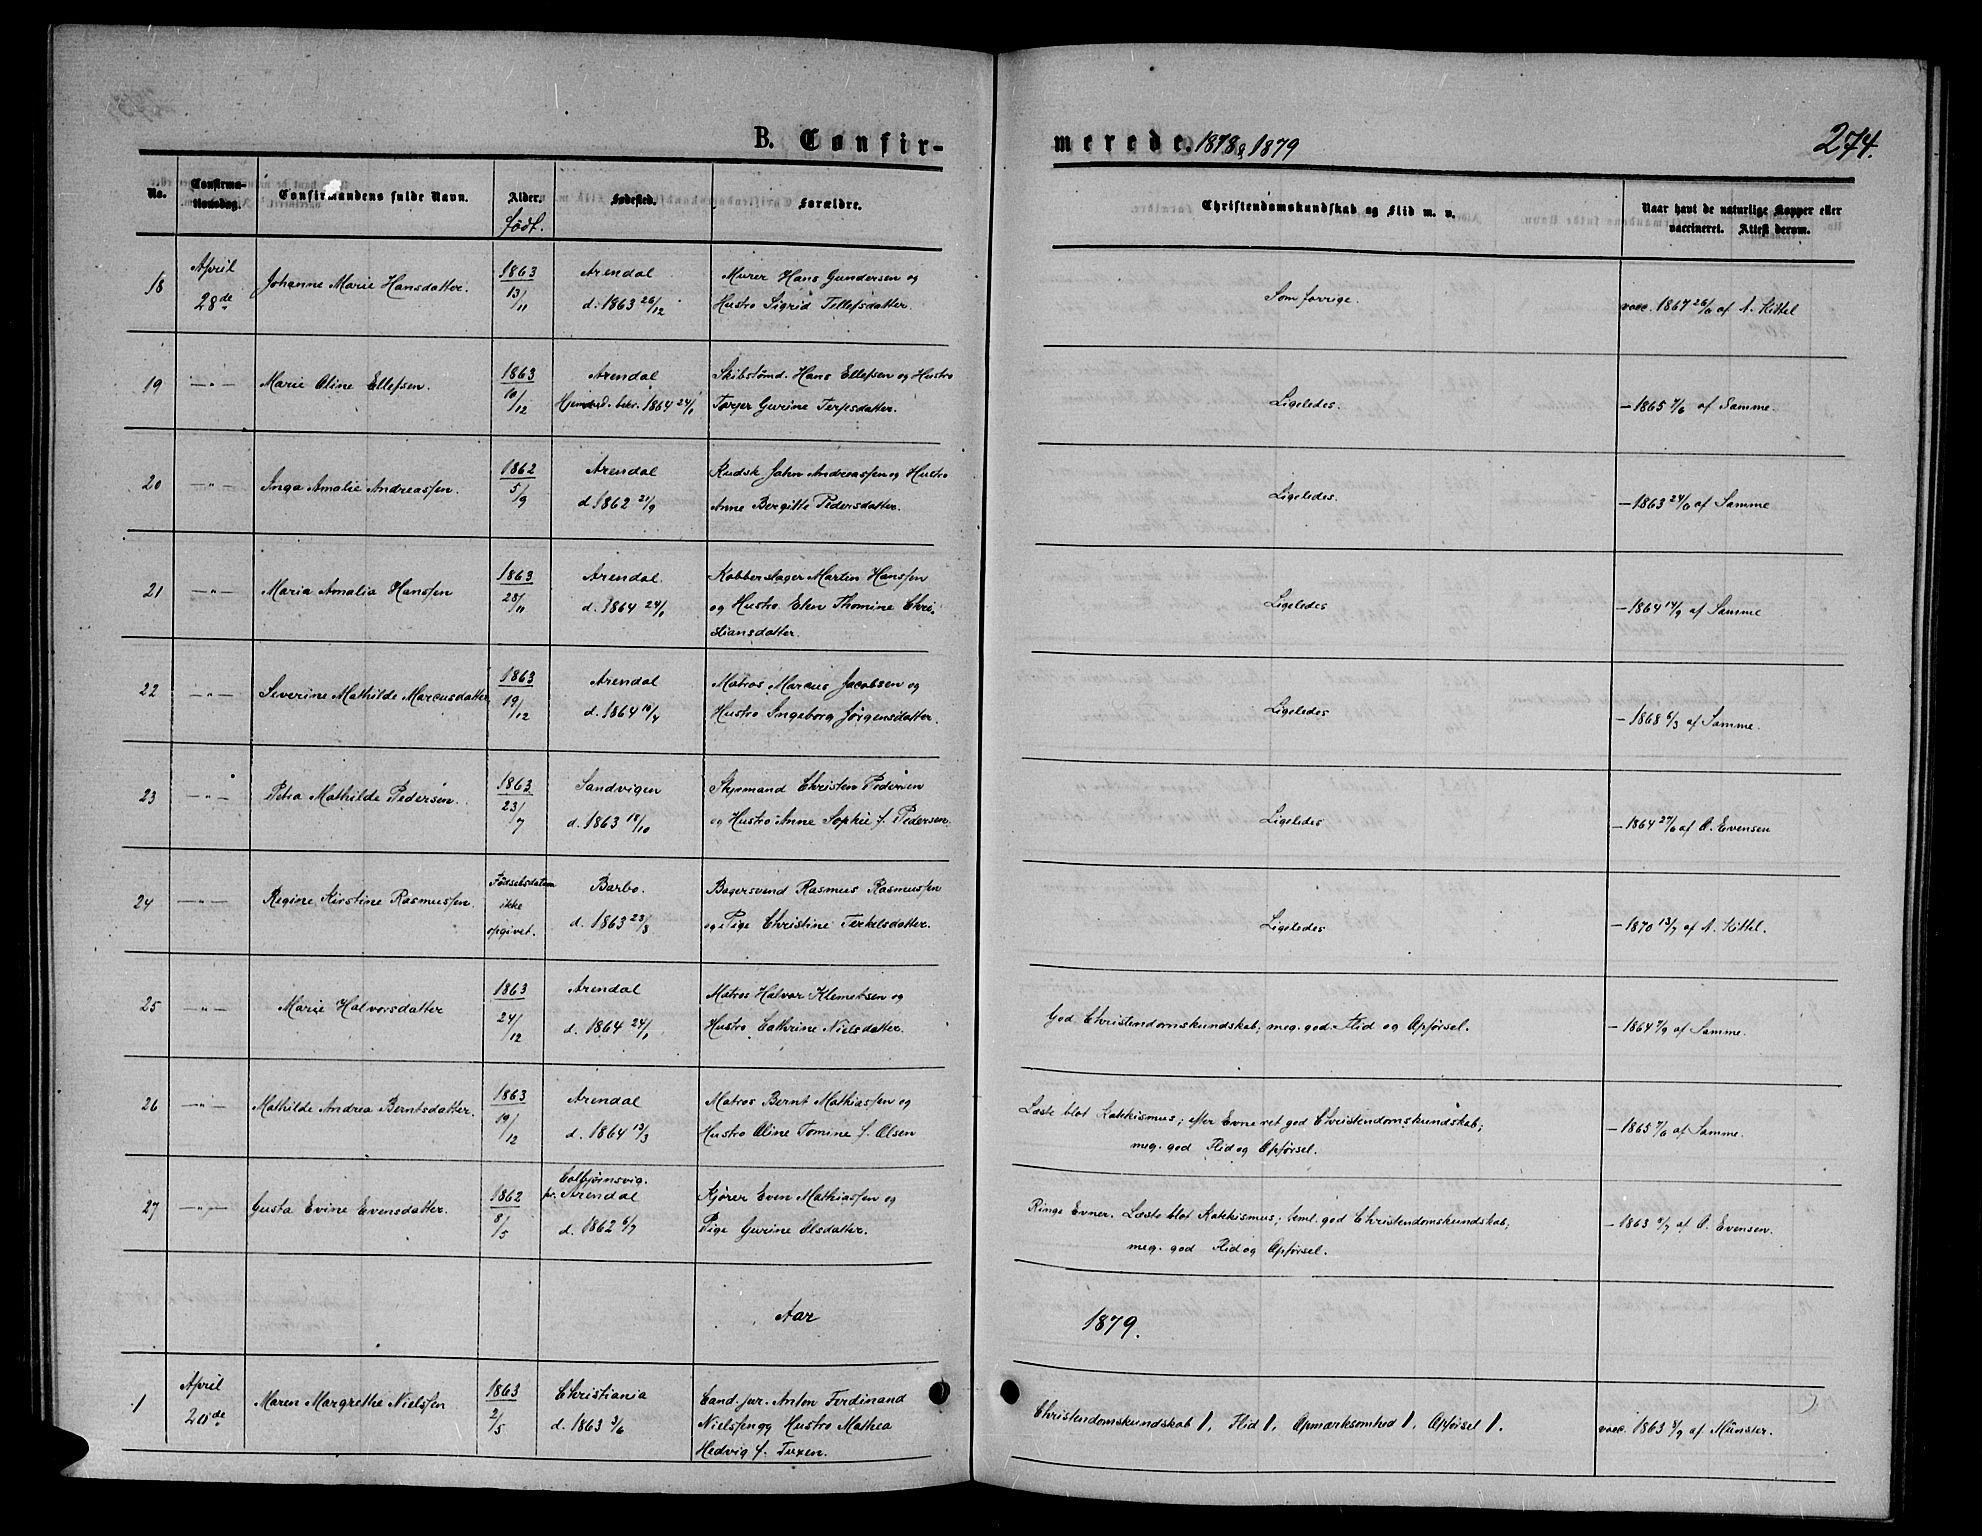 B. Confirmerede. 1878 & 1879
274.
No. Confirmationsdag. Confirmandens fulde Navn. Alder. Fødested. Forældre. Christendomskundskab og Flid m. v. Naar havt de naturlige Kopper eller vaccineret. Attest derom.
født.
18 April 28de Johanne Marie Hansdatter. 1863 13/11 Arendal d. 1863 26/12 Murer Hans Gundersen og
Hustro Sigrid Tellefsdatter. Som forrige. vacc. 1867 26/6 af A. Kittel
19 —"— Marie Oline Ellefsen. 1863 10/12 Arendal Hjemmed. bekr. 1864 24/1 Skibstømd. Hans Ellefsen og Hustro
Torjer Gurine Terjesdatter. Ligeledes. — 1865 7/6 af Samme.
20 —"— Inga Amalie Andreassen. 1862 5/9 Arendal d. 1862 21/9 Kudsk John Andreassen og Hustro
Anne Bergitte Pedersdatter. Ligeledes. — 1863 24/6 af Samme
21 —"— Maria Amalia Hanssen 1863 28/11 Arendal. d. 1864 24/1 Kobberslager Martin Hanssen
og Hustro Elen Thomine Chri-
stiansdatter. Ligeledes — 1864 14/9 af Samme
22 —"— Severine Mathilde Marcusdatter 1863 19/12 Arendal d. 1864 10/4 Matros Marcus Jacobsen og
Hustro Ingeborg Jørgensdatter. Ligeledes — 1868 6/3 af Samme.
23 —"— Petra Mathilde Pedersen. 1863 23/7 Sandvigen d. 1863 18/10 Styrmand Christen Pedersen
og Hustro Anne Sophie f. Pedersen. Ligeledes — 1864 27/6 af O. Evensen
24 —"— Regine Kirstine Rasmussen. Fødselsdatum ikke opgivet. Barbo. d. 1863 23/3 Bagersvend Rasmus Rasmussen
og Pige Christine Terkelsdatter. Ligeledes — 1870 13/7 af A. Kittel.
25 —"— Marie Halvorsdatter 1863 24/12 Arendal d. 1864 24/1 Matros Halvor Klemetsen og
Hustro Cathrine Nielsdatter. God Christendomskundskab; meg. god Flid og Opførsel. — 1864 7/9 af Samme.
26 —"— Mathilde Andrea Berntsdatter. 1863 19/12 Arendal d. 1864 13/3 Matros Bernt Mathiassen og
Hustro Oline Tomine f. Olsen Læste blot Katekismus; efter Evne ret god Christendomskundskab;
meg. god Flid og Opførsel. — 1865 7/6 af Samme.
27 —"— Gusta Evine Evensdatter. 1862 8/5 Colbjørnsvig. pr. Arendal d. 1862 6/7 Kjører Even Mathiassen og
Pige Gurine Olsdatter. Ringe Evner. Læste blot Katekismus; teml. god Christendomskundskab;
meg. god Flid og Opførsel. af O. Evensen.
Aar 1879.
1 April 20de Maren Margrethe Nielssen 1863 2/5 Christiania d. 1863 3/6 Cand. jur. Anton Ferdinand
Nielssen og Hustro Mathea
Hedvig f. Tuxen. Christendomskundskab 1, Flid 1, Opmærksomhed 1, Opførsel 1. vacc. 1863 af Münster.